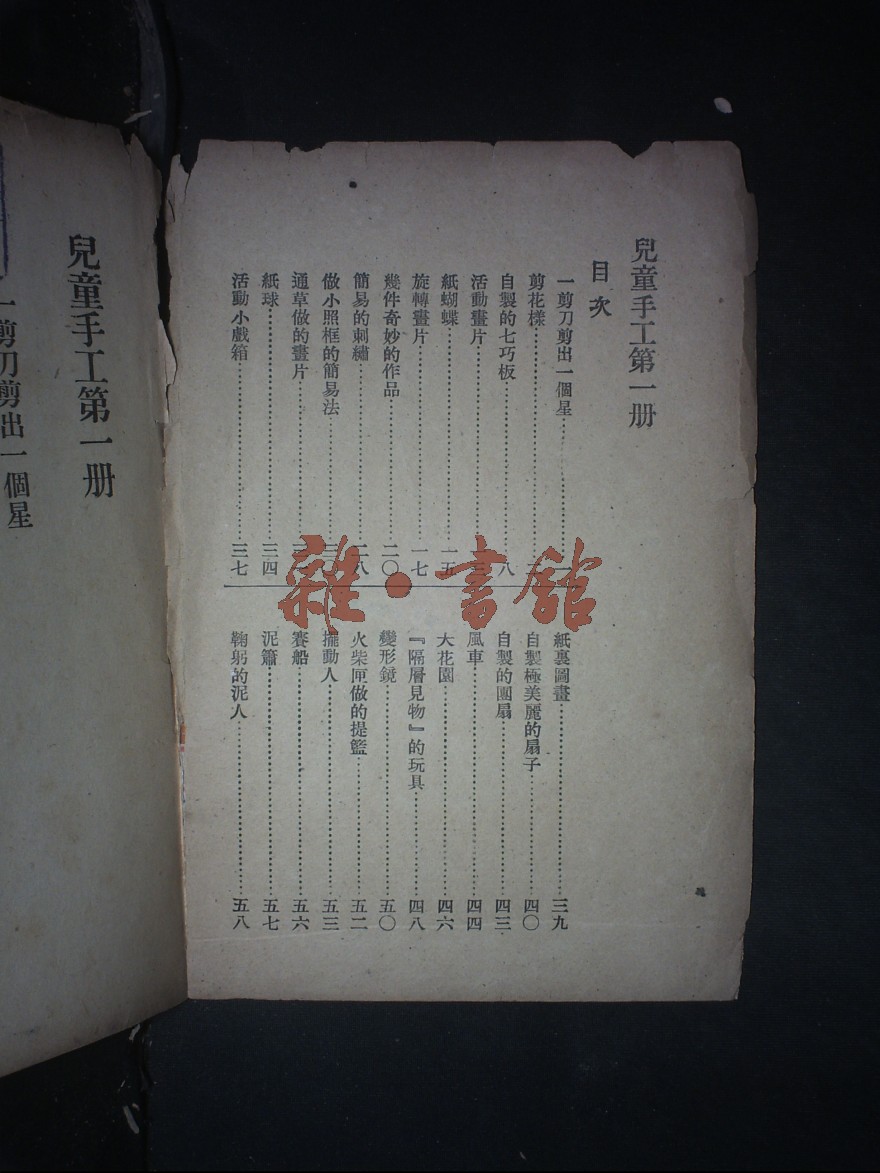 兒童手工第一册
目次
一剪刀剪出一個星
剪花樣
自製的七巧板……八
活動畫片
紙蝴蝶……一五
旋轉畫片……一七
幾件奇妙的作品……二〇
簡易的刺繡……二八
做小照框的簡易法
通草做的畫片
紙球……三四
活動小戲箱……三七
紙裏圖畫……三九
自製極美麗的扇子……四〇
自製的團扇……四三
風車……四四
大花園……四六
『隔層見物』的玩具……四八
變形鏡……五〇
火柴匣做的提籃……五二
擺動人……五三
賽船……五六
泥簫……五七
鞠躬的泥人……五八
雜·書館
兒童手工第一册
一剪刀剪出一個星